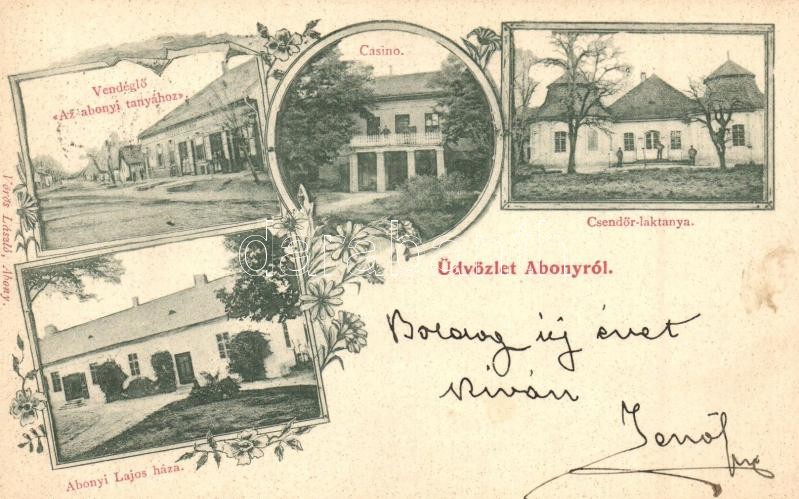 Vendéglő
«Az abonyi tanyához».
Casino.
Csendőr-laktanya.
Üdvözlet Abonyról.
Vörös László, Abony.
Abonyi Lajos háza.
Boldog új évet
kíván
Jenő
darabanth